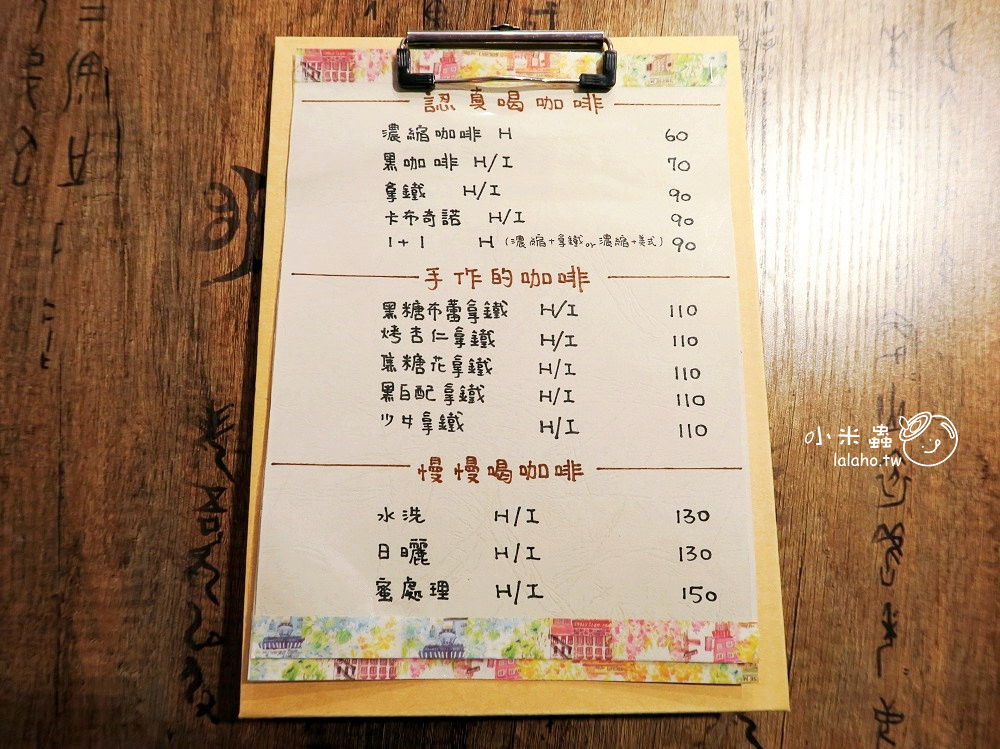 認真喝咖啡
濃縮咖啡 H 60
黑咖啡 H/I 70
拿鐵 H/I 90
卡布奇諾 H/I 90
1+1 H (濃縮+拿鐵or濃縮+美式) 90
手作的咖啡
黑糖布蕾拿鐵 H/I 110
烤杏仁拿鐵 H/I 110
焦糖花拿鐵 H/I 110
黑白配拿鐵 H/I 110
少女拿鐵 H/I 110
慢慢喝咖啡
水洗 H/I 130
日曬 H/I 130
蜜處理 H/I 150
小米蟲
lalaho.tw